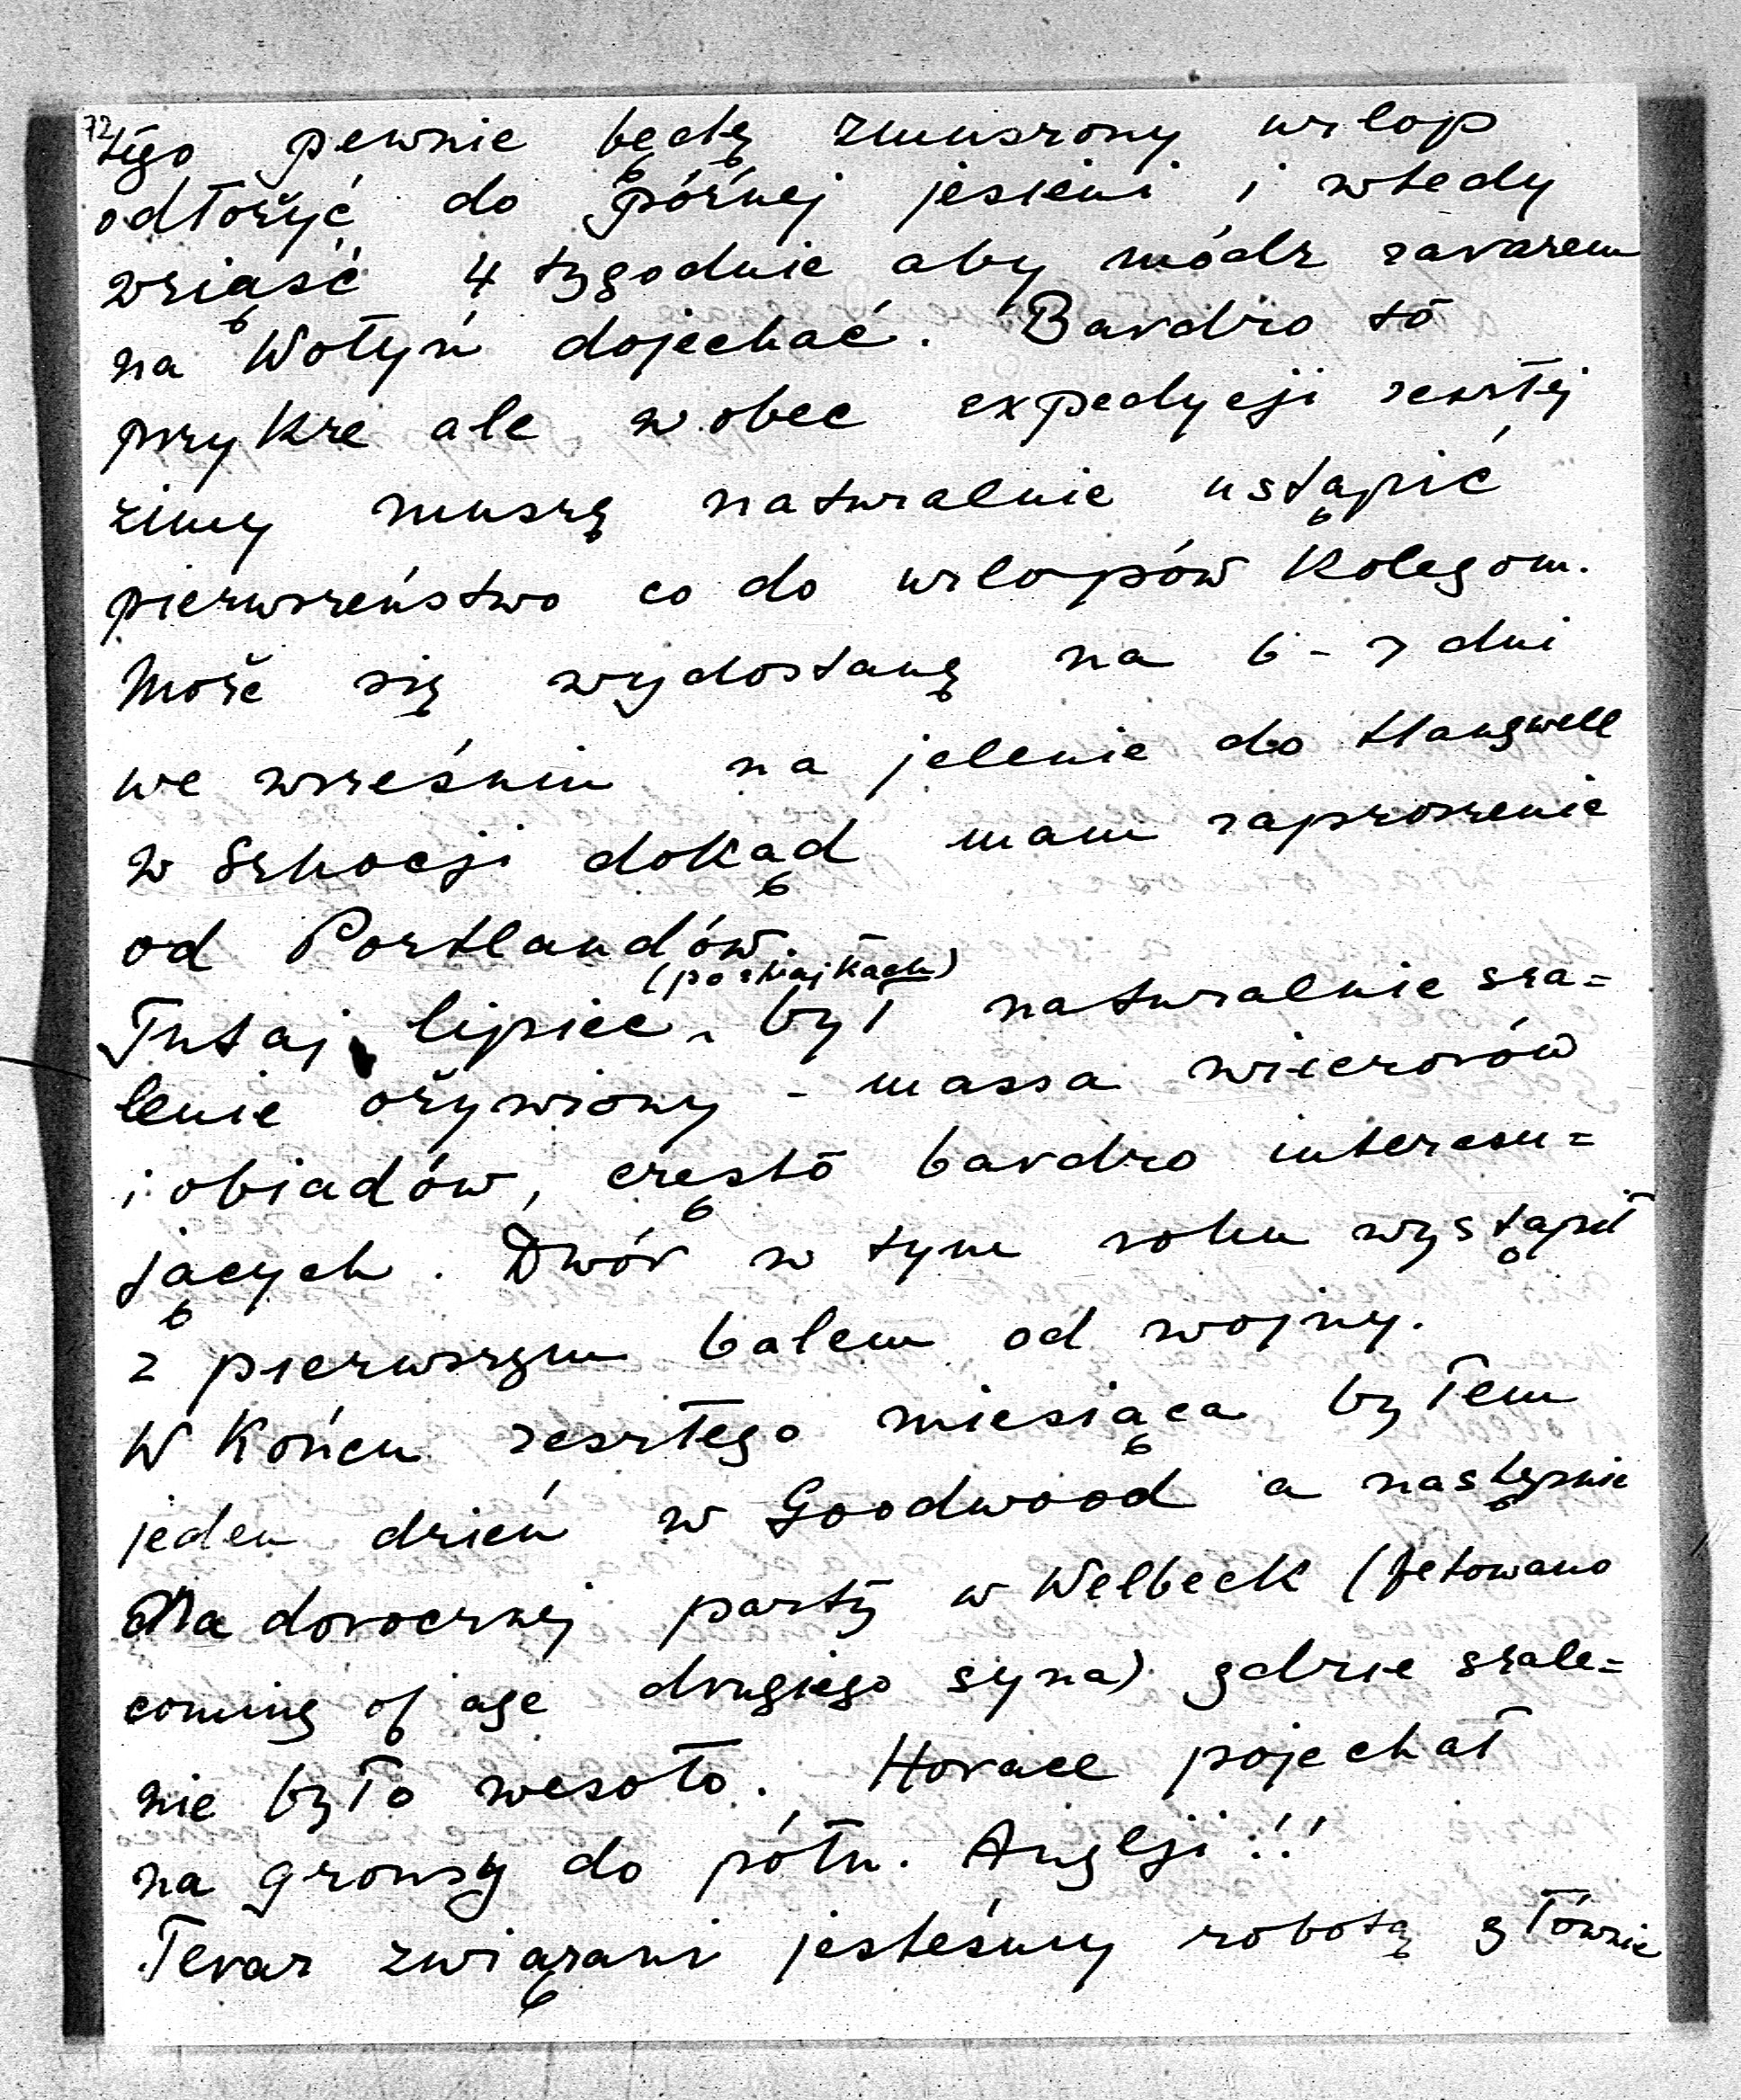 72
tego pewnie będę zmuszony urlop
odłożyć do późnej jesieni i wtedy
wziąść 4 tygodnie aby módz zarazem
na Wołyń dojechać. Bardzo to
przykre ale wobec expedycji zeszłej
zimy muszę naturalnie ustąpić
pierwszeństwo co do urlopów kolegom.
Może się wydostanę na 6-7 dni
we wrześniu na jelenie do Langwell
w Szkocji dokąd mam zaproszenie
od Portlandów.
(po strajkach)
Tutaj lipiec był naturalnie sza=
lenie ożywiony - massa wieczorów
i obiadów, często bardzo interesu=
jących. Dwór w tym roku wystąpił
z pierwszym balem od wojny.
W końcu zeszłego miesiąca byłem
jeden dzień w Goodwood a następnie
dla dorocznej party w Welbeck (fetowano
coming of age drugiego syna) gdzie szale=
nie było wesoło. Horace pojechał
na grousy do półn. Anglji!!
Teraz związani jesteśmy robotą głównie